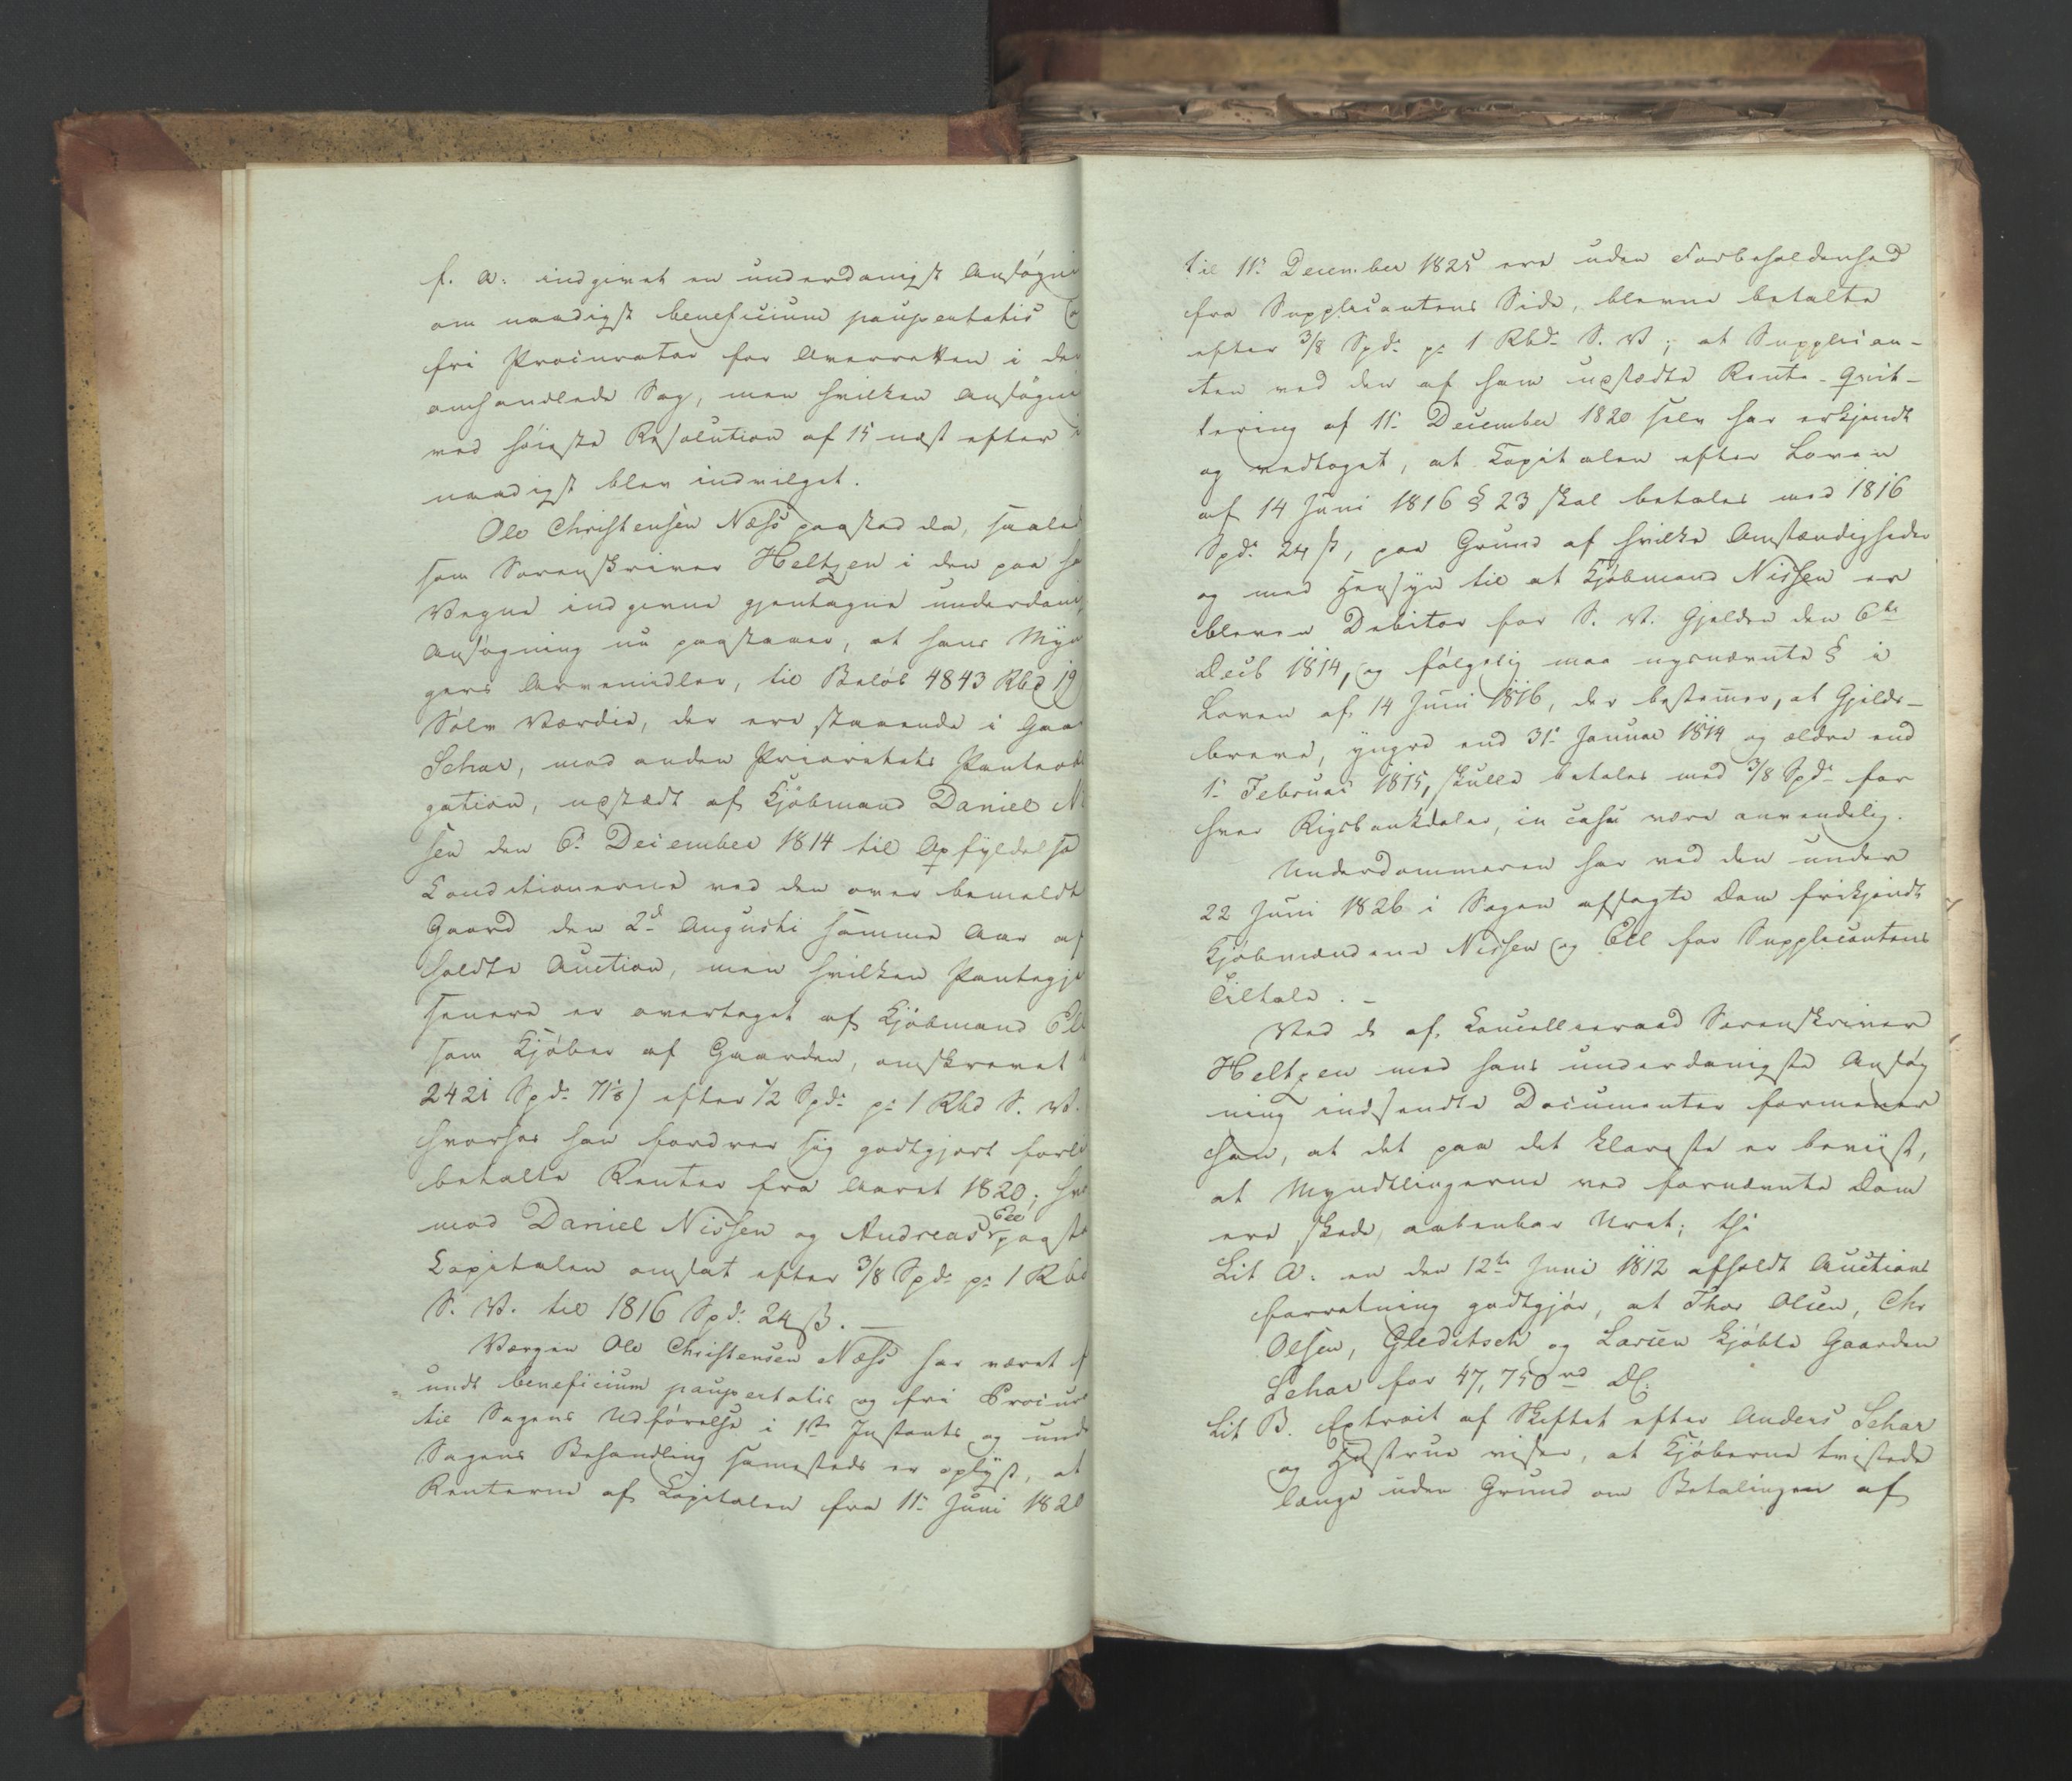 f. A: indgivet en underdanigst Ansøgni
om naadigst beneficium paupertatis o
fri Procurator for Overretten i de
omhandlede Sag, men hvilken Ansøgni
ved høieste Resolution af 15 næst efter i
naadigst blev indvilget.
Ole Christensen Næss paastod da, saaled
som Sorenskriver Heltzen i den paa ha
Vegne indgivne gjentagne underdani
Ansøgning nu paastaaer, at hans Myn
gers Arvemidler, til Beløb 4843 Rbd 19
Sølv Værdie, der ere staaende i Gaa
Schar, mod anden Prioritets Panteobl
gation, udstædt af Kjøbmand Daniel Ni
sen den 6: December 1814 til Opfyldelse
Conditionerne ved den over bemeldt
Gaard den 2d Augusti samme Aar af
holdte Auction, men hvilken Pantegje
senere er overtaget af Kjøbmand Ell
som Kjøber af Gaarden, omskrevet
2421 Spd: 71½ ) efter ½ Spd: pr 1 Rbd S. V.
hvorhos han fordrer sig godtgjort forli
betalte Renter fra Aaret 1820; hvo
mod Daniel Nissen og Andreas Ell paasto
Capitalen omsat efter 3/8 Spd: pr 1 Rbd
S. V. til 1816 Spd: 24 ß. —
Værgen Ole Christensen Næss har været f
undt beneficium paupertatis og fri Procur
til Sagens Udførelse i 1ste Instants og unde
Sagens Behandling sammesteds er oplyst, at
Renterne af Capitalen fra 11: Juni 1820
til 11: December 1825 ere uden Forbeholdenhed
fra Supplicantens Side, blevne betalte
efter 3/8 Spd: pr 1 Rbd: S. V; at Supplican-
ten ved den af ham udstædte Rente-Qvit-
tering af 11: December 1820 selv har erkjendt
og vedtaget, at Capitalen efter Loven
af 14 Juni 1816 § 23 skal betales med 1816
Spd: 24 ß, paa Grund af hvilke Omstændigheder
og med Hensyn til at Kjøbmand Nissen er
bleven Debitor for S. V. Gjelden den 6te
Decb 1814, og følgelig maa nysnævnte § i
Loven af 14 Juni 1816, der bestemer, at Gjelds-
breve, yngre end 31: Januar 1814 og ældre end
1: Februar 1815, skulle betales med 3/8 Spd: for
hver Rigsbankdaler, in casu være anvendelig.
Underdommeren har ved den under
22 Juni 1826 i Sagen afsagte Dom frikjendt
Kjøbmændene Nissen og Ell for Supplicantens
Tiltale. –
Ved de af Cancellieraad Sorenskriver
Heltzen med hans underdanigste Ansøg
ning indsendte Documenter formener
han, at det paa det klareste er beviist,
at Myndtlingerne ved fornævnte Dom
ere skede aabenbar Uret; thi
Lit A: en den 12te Juni 1812 afholdt Auctions
forretning godtgjør, at Thor Olsen, Chr
Olsen, Gleditsch og Larsen kjøbte Gaarden
Schar for 47,750 rd DC:
Lit B. Extract af Skiftet efter Anders Schar
og Hustrue viser, at Kjøberne tvistede
længe uden Grund om Betalingen af